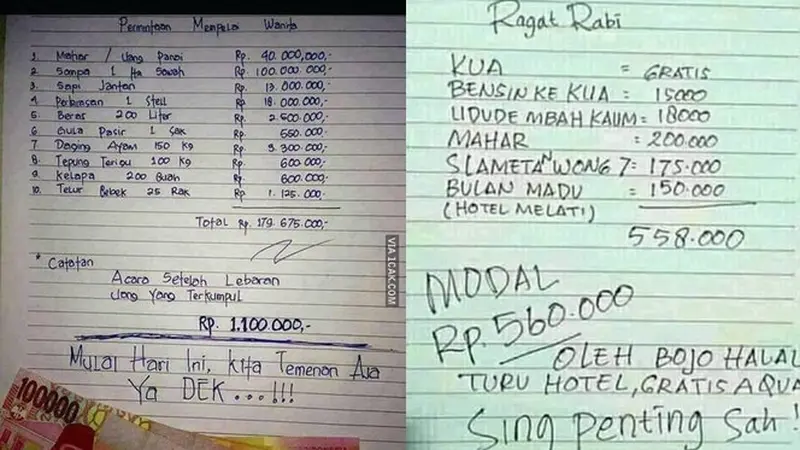 Permintaan Mempelai Wanita
1 Mahar / Uang Panai Rp. 40.000,000,-
2 Sompa 1 Ha Sawah Rp. 100.000.000,-
3. Sapi Jantan Rp. 13.000.000,-
4 Perhiasan 1 Stell Rp. 18.000.000,-
5. Beras 200 Liter Rp 2.500.000,-
6 Gula Pasir 1 Sak Rp 550.000,-
7 Daging Ayam 150 Kg Rp 3.300.000,-
8. Tepung Terigu 100 Kg Rp 600.000,-
9. Kelapa 200 Buah Rp 600.000,-
10. Telur Bebek 25 Rak Rp 1.125.000,-
Total Rp. 179.675.000,-
* Catatan
Acara Setelah Lebaran
Uang Yang Terkumpul
Rp. 1.100.000,-
Mulai Hari Ini, Kita Temenan Aja
Ya DEK...!!!
100000
VIA 1CAK.COM
Ragat Rabi
KUA = GRATIS
BENSIN KE KUA = 15000
UDUDE MBAH KAUM = 18000
MAHAR = 200.000
SLAMETAN WONG 7 = 175.000
BULAN MADU = 150.000
(HOTEL MELATI)
558.000
MODAL
Rp. 560.000
OLEH BOJO HALAL
TURU HOTEL, GRATIS AQUA
Sing penting Sah!